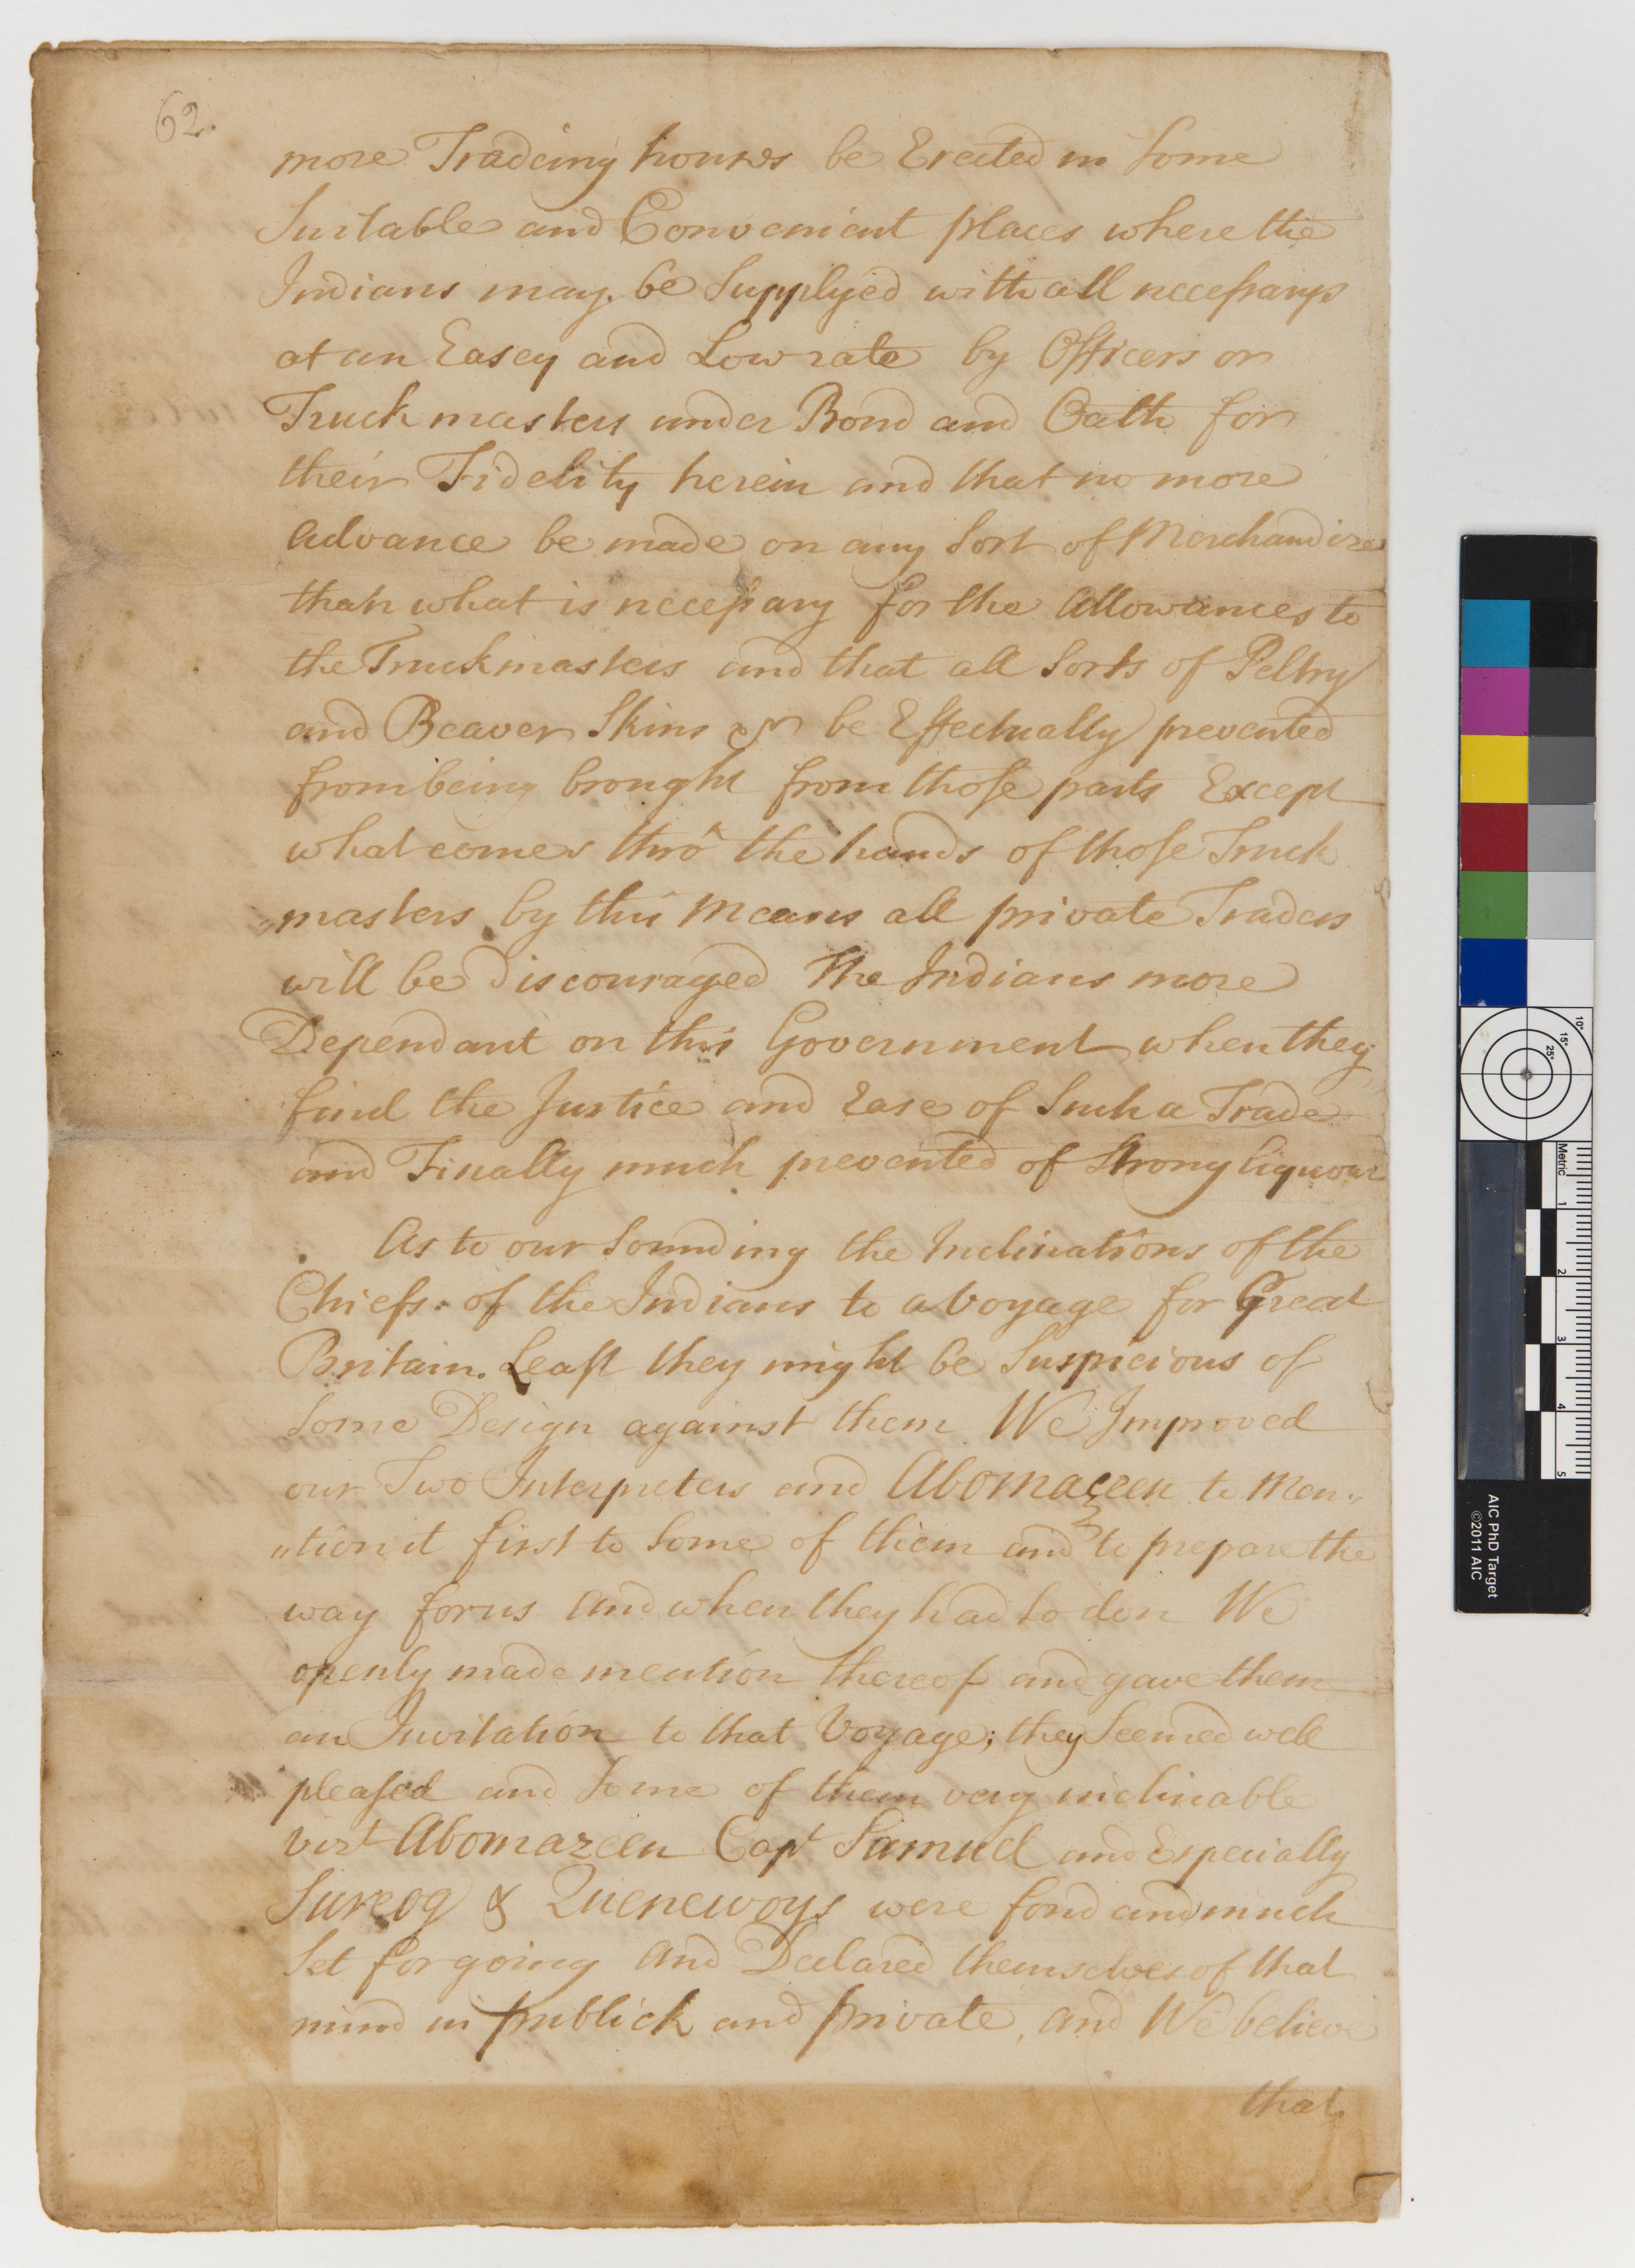 62.
more Tradeing houses be Erected in Some
Suitable and Convenient places where the
Indians may be Supplyed with all necessarys
at an Easey and Low rate by Officers or
Truckmasters under Bond and Oath for
their Fidelity herein and that no more
Advance be made on any Sort of Merchandize
than what is necessary for the Allowances to
the Truckmasters and that all Sorts of Peltry
and Beaver Skins &c be Effectually prevented
from being brought from those parts Except
what comes thrô the hands of those Truck
"masters by this Means all private Traders
will be Discouraged The Indians more
Dependant on this Government when they
find the Justice and Ease of Such a Trade
and Finally much prevented of Strong liquour
As to our Sounding the Inclinations of the
Chiefs of the Indians to a Voyage for Great
Britain. Least they might be Suspicious of
Some Design against them We Improved
our Two Interpreters and Abomazeen to Men"
"tion it first to Some of them and to prepare the
way for us And when they had so don We
openly made mention thereof and gave them
an Invitation to that Voyage; they Seemed well
pleased and Some of them very inclinable
vizt Abomazeen Capt Samuel and Especially
Sureog & Quenewoys were fond and much
Set for going And Declared themselves of that
mind in publick and private, and We believe
that
10°
15°
25°
Metric
1
2
3
4
5
AIC PhD Target
©2011 AIC